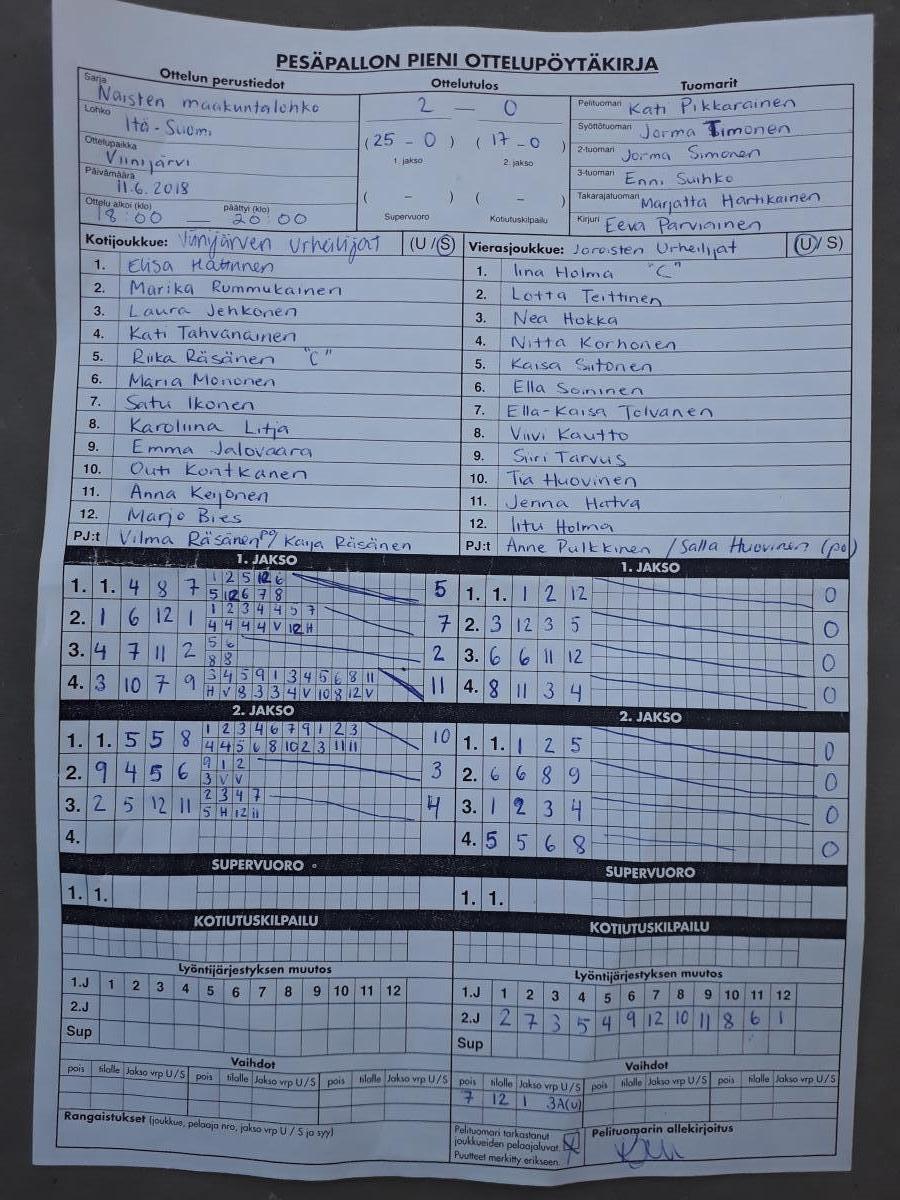 PESÄPALLON PIENI OTTELUPÖYTÄKIRJA
Ottelun perustiedot Ottelutulos Tuomarit
Sarja Naisten maakuntalohko
Lohko Itä-Suomi
Ottelupaikka Viinijärvi
Päivämäärä 11.6.2018
Ottelu alkoi (klo) 18:00 — päättyi (klo) 20:00
2 — 0
(25 - 0) (17 - 0)
1. jakso 2. jakso
( - ) ( - )
Supervuoro Kotiutuskilpailu
Pelituomari Kati Pikkarainen
Syöttötuomari Jorma Timonen
2-tuomari Jorma Simonen
3-tuomari Enni Suihko
Takarajatuomari Marjatta Hartikainen
Kirjuri Eeva Parviainen
Kotijoukkue: Viinijärven Urheilijat (U/S)
1. Elisa Hattinen
2. Marika Rummukainen
3. Laura Jehkonen
4. Kati Tahvanainen
5. Riika Räsänen "C"
6. Maria Mononen
7. Satu Ikonen
8. Karoliina Litja
9. Emma Jalovaara
10. Outi Kontkanen
11. Anna Keijonen
12. Marjo Bies
PJ:t Vilma Räsänen po/ Kaija Räsänen
Vierasjoukkue: Joroisten Urheilijat (U/S)
1. Iina Holma "C"
2. Lotta Teittinen
3. Nea Hokka
4. Nitta Korhonen
5. Kaisa Siitonen
6. Ella Soininen
7. Ella-Kaisa Tolvanen
8. Viivi Kautto
9. Siiri Tarvus
10. Tia Huovinen
11. Jenna Hatva
12. Iitu Holma
PJ:t Anne Pulkkinen / Salla Huovinen (po)
1. JAKSO
1. 1. 4 8 7 1 2 5 12 6 5
5 12 6 7 8
2. 1 6 12 1 1 2 3 4 4 5 7 7
4 4 4 4 V 12 H
3. 4 7 11 2 5 6 2
8 8
4. 3 10 7 9 3 4 5 9 1 3 4 5 6 8 11 11
H V 8 3 3 4 V 10 8 12 V
2. JAKSO
1. 1. 5 5 8 1 2 3 4 6 7 9 1 2 3 10
4 4 5 6 8 10 2 3 11 11
2. 9 4 5 6 9 1 2 3
3 V V
3. 2 5 12 11 2 3 4 7 4
5 H 12 11
4.
SUPERVUORO
1. 1.
KOTIUTUSKILPAILU
1. JAKSO
1. 1. 1 2 12 0
2. 3 12 3 5 0
3. 6 6 11 12 0
4. 8 11 3 4 0
2. JAKSO
1. 1. 1 2 5 0
2. 6 6 8 9 0
3. 1 2 3 4 0
4. 5 5 6 8 0
SUPERVUORO
1. 1.
KOTIUTUSKILPAILU
Lyöntijärjestyksen muutos
1.J 1 2 3 4 5 6 7 8 9 10 11 12
2.J
Sup
Vaihdot
pois tilalle Jakso vrp U/S pois tilalle Jakso vrp U/S pois tilalle Jakso vrp U/S
Rangaistukset (joukkue, pelaaja nro, jakso vrp U / S ja syy)
Lyöntijärjestyksen muutos
1.J 1 2 3 4 5 6 7 8 9 10 11 12
2.J 2 7 3 5 4 9 12 10 11 8 6 1
Sup
Vaihdot
pois tilalle Jakso vrp U/S pois tilalle Jakso vrp U/S pois tilalle Jakso vrp U/S
7 12 1 3A(U)
Pelituomari tarkastanut
joukkueiden pelaajaluvat.
Puutteet merkitty erikseen.
Pelituomarin allekirjoitus